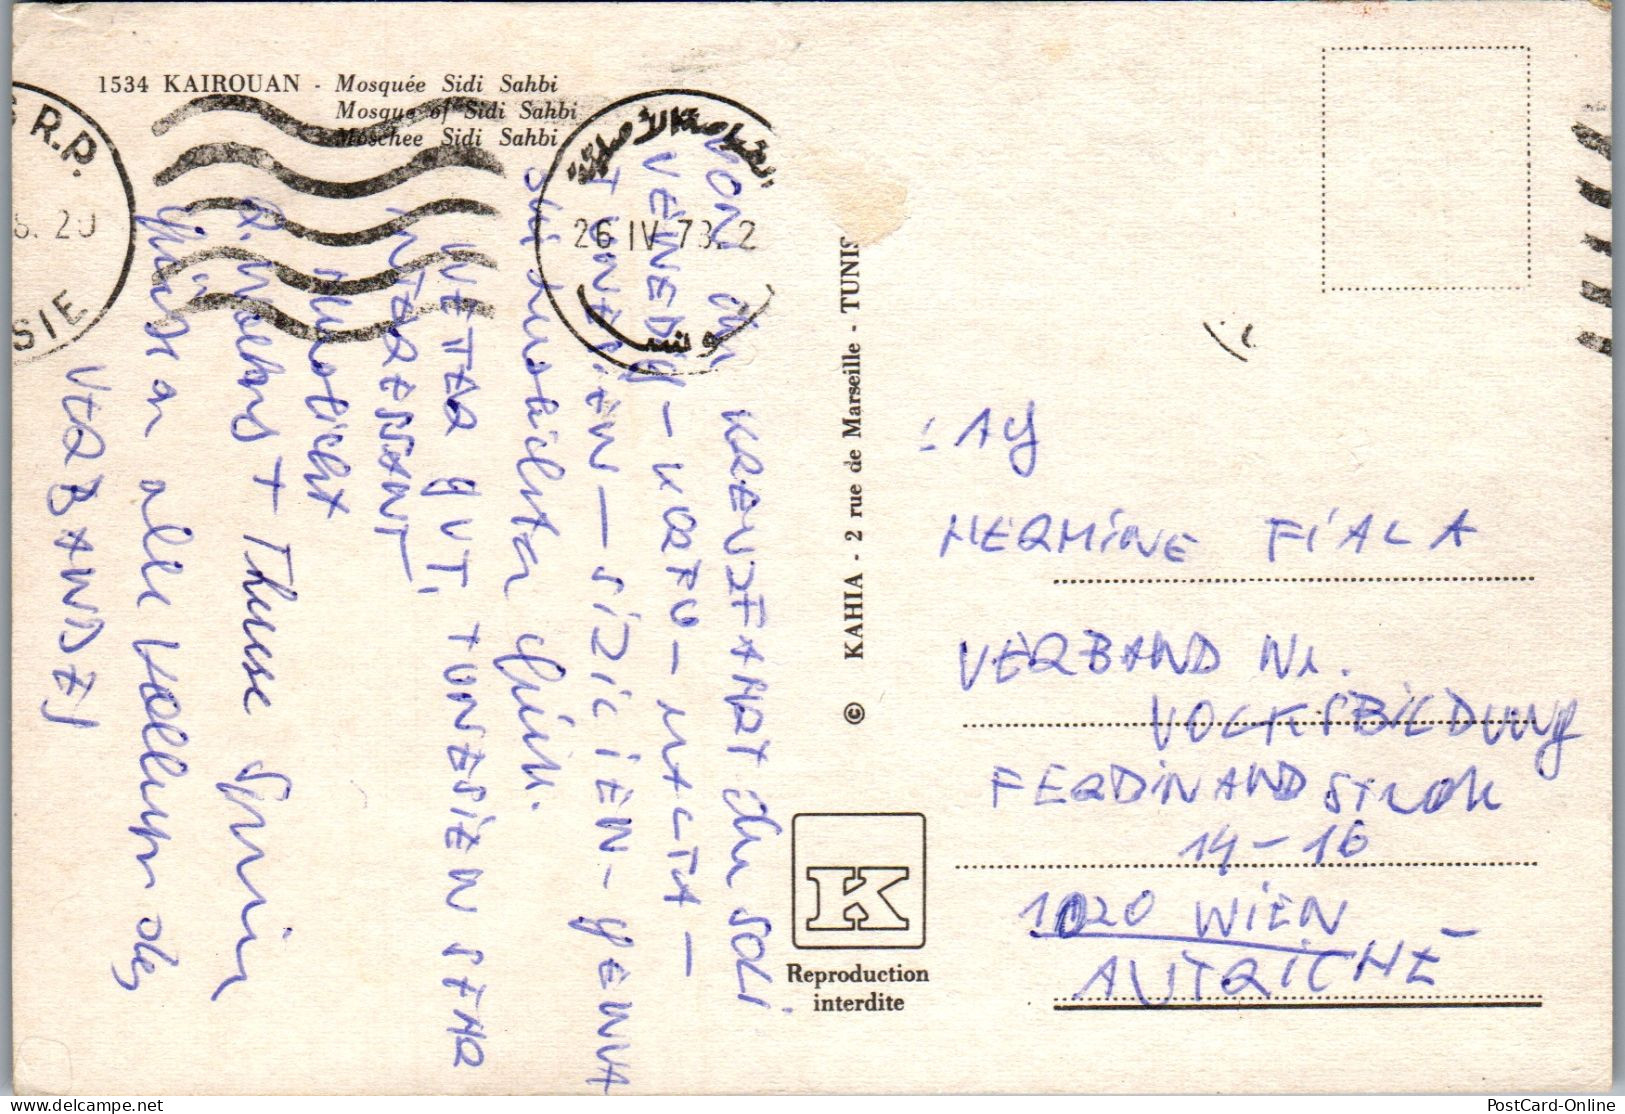 1534 KAIROUAN - Mosquée Sidi Sahbi
Mosque of Sidi Sahbi
Moschee Sidi Sahbi
R.P.
20
SIE
26 IV 78
تونس
VON der KREUZFAHRT der SOLI
VENEDIG - KORFU - MALTA -
TUNESIEN - SIZILIEN - GENUA
herzlichste Grüße.
WETTER GUT, TUNESIEN SEHR
INTERESSANT,
+ Therese
Grüsse an alle Kollegen des
VERBANDES
© KAHIA - 2 rue de Marseille - TUNIS
K
Reproduction
interdite
HERMINE FIALA
VERBAND
VOLKSBILDUNG
FERDINAND
14-16
1020 WIEN
AUTRICHE
PostCard-Online